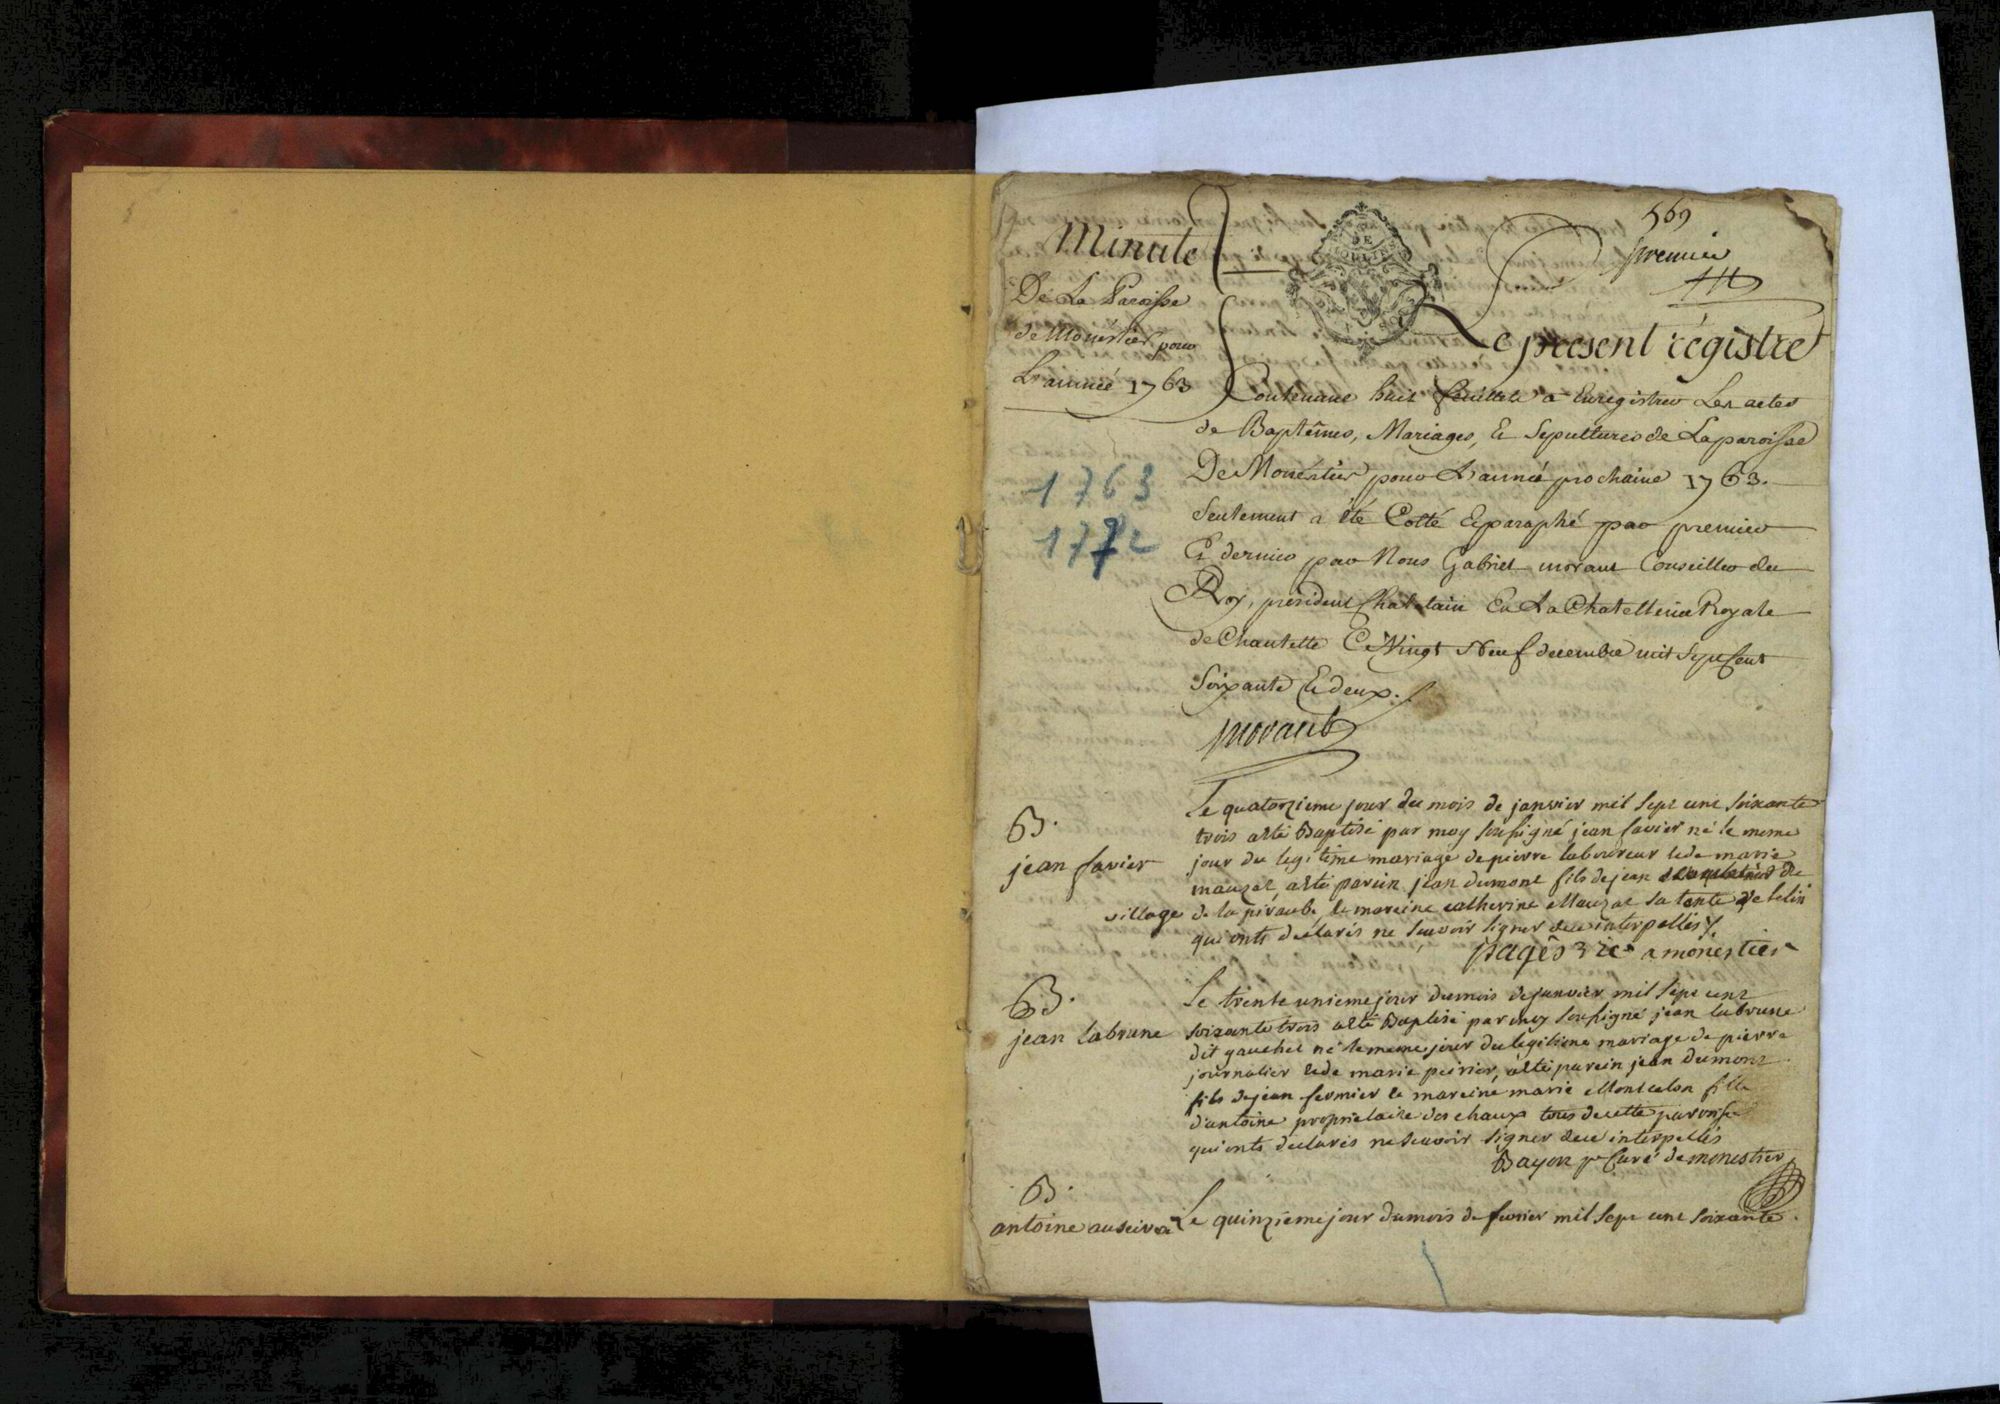 569
premier
Minute
De La Paroisse
de Monestier pour
L'année 1763
Le present régistre
Contenant huit feuillets a Enregistrer Les actes
de Baptêmes, Mariages, Et Sepultures de La paroisse
De Monestier pour L'année prochaine 1763.
Seulement a été Cotté Et paraphé par premier
Et dernier par Nous Gabriel morant Conseiller du
Roy, president Chatelain En La Chatellenie Royale
de Chantelle Ce Vingt Neuf decembre mil Sept Cent
Soixante Et deux.
morant
1763
1772
B.
jean favier
Le quatorzieme jour du mois de janvier mil sept cent soixante
trois a eté Baptisé par moy soussigné jean favier né le meme
jour du legitime mariage de pierre laboureur et de marie
mauzat, a eté parein jean dumont fils de jean de
village de la piraube, la mareine catherine Mauzat sa tante
qui ont declarés ne sçavoir signer de ce interpellés
pagês a monestier
B.
jean labrune
Le trente unieme jour du mois de janvier mil sept cent
soixante trois a eté Baptisé par moy soussigné jean labrune
dit gauchet né le meme jour du legitime mariage de pierre
journalier et de marie peirier, a eté parein jean dumont
fils de jean fermier la mareine marie Montcelon fille
d'antoine proprietaire des chaux tous de cette paroisse
qui onts declarés ne scavoir signer de ce interpellés
Bayon Curé de monestier
B.
antoine
Le quinzieme jour du mois de fevrier mil sept cent soixante